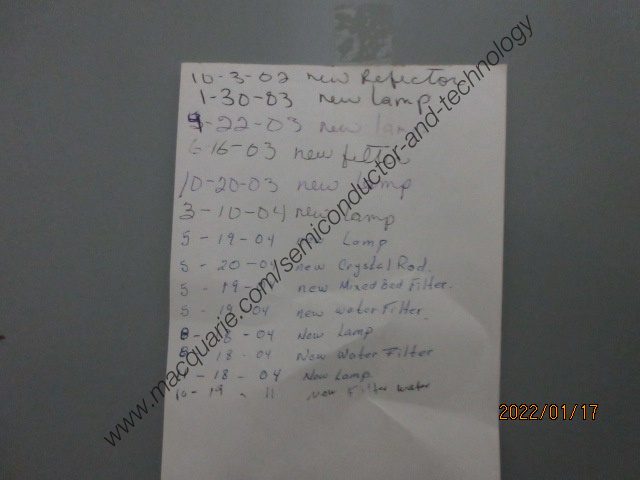 10-3-02 new Refector
1-30-03 new lamp
-22-03 new lamp
6-16-03 new filter
10-20-03 new Lamp
3-10-04 new Lamp
5-19-04 Lamp
5-20-04 new Crystal Rod.
5-19- new Mixed Bed Filter.
5-19-04 new water Filter.
8-18-04 New Lamp
8-18-04 New Water Filter
-18-04 New Lamp
10-19-11 New Filter water
www.macquarie.com/semiconductor-and-technology
2022/01/17